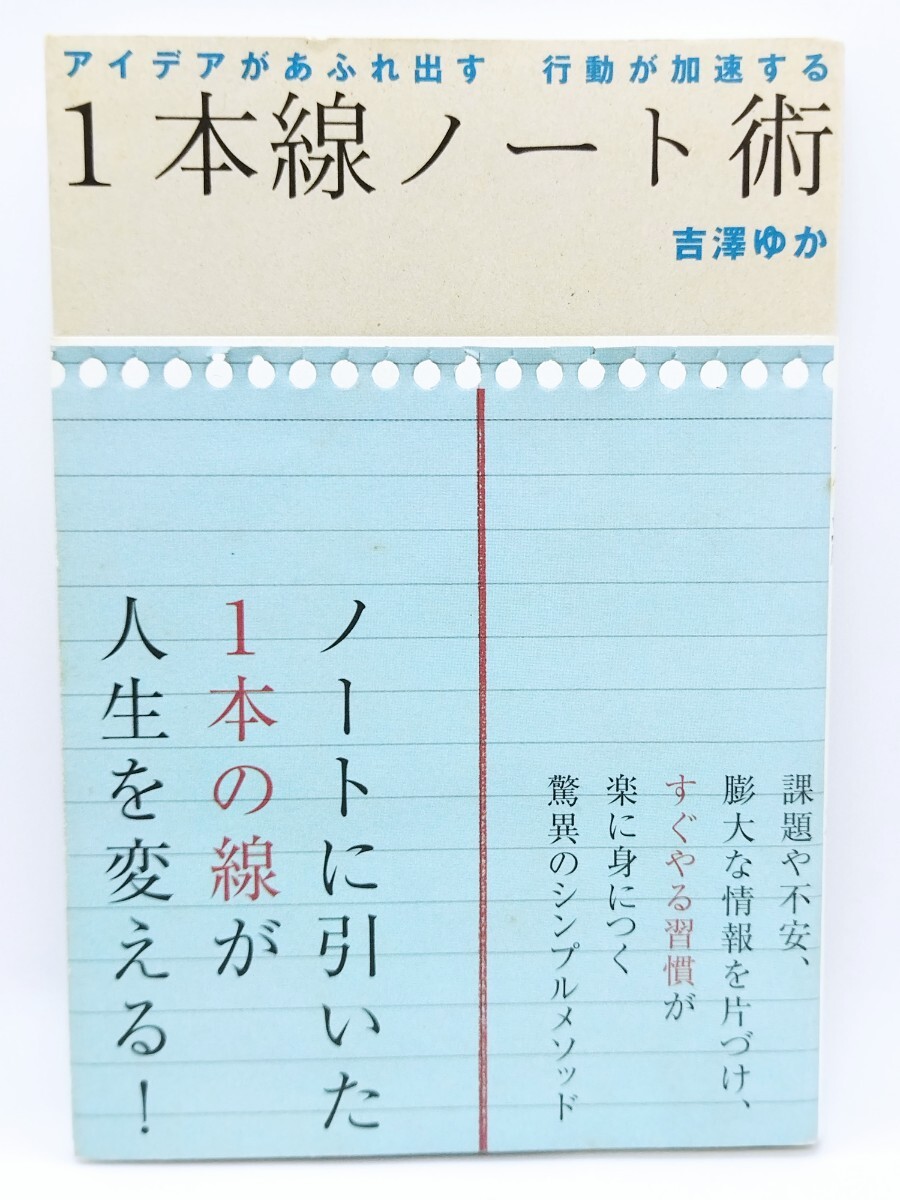 アイデアがあふれ出す　行動が加速する
1本線ノート術
吉澤ゆか
課題や不安、
膨大な情報を片づけ、
すぐやる習慣が
楽に身につく
驚異のシンプルメソッド
ノートに引いた
1本の線が
人生を変える！